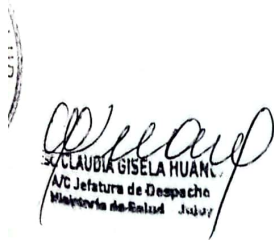 CLAUDIA GISELA HUANC
A/C Jefatura de Despacho
Ministerio de Salud Jujuy